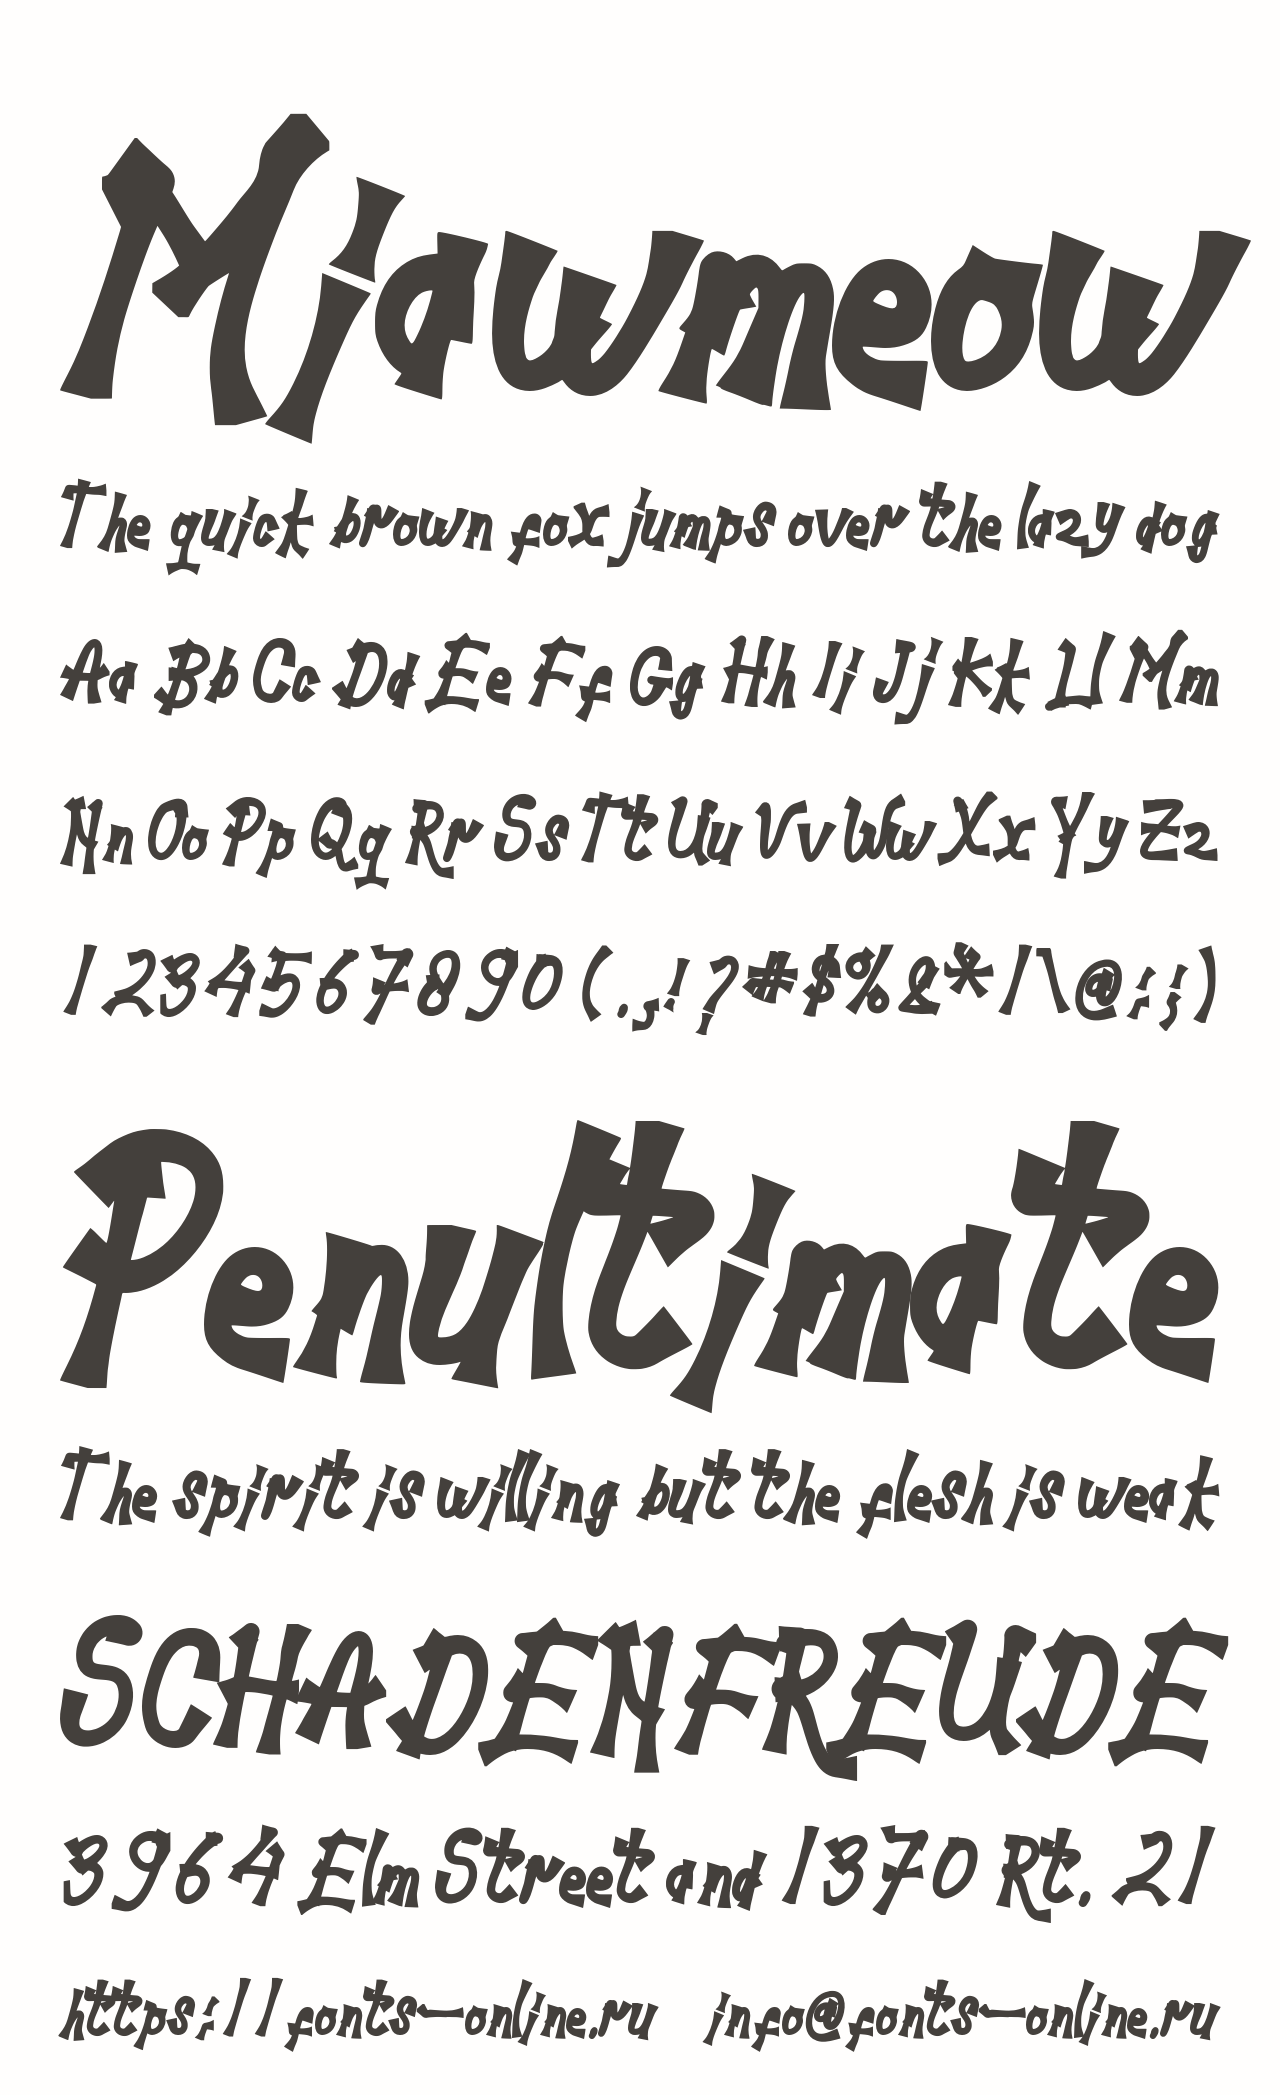 Mjawmeow
The quick brown fox jumps over the lazy dog
Aa Bb Cc Dd Ee Ff Gg Hh Ii Jj Kk Ll Mm
Nn Oo Pp Qq Rr Ss Tt Uu Vv Ww Xx Yy Zz
1234567890(.,!?#$%&*/\@:;)
Penultimate
The spirit is willing but the flesh is weak
SCHADENFREUDE
3964 Elm Street and 1370 Rt. 21
https://fonts-online.ru info@fonts-online.ru